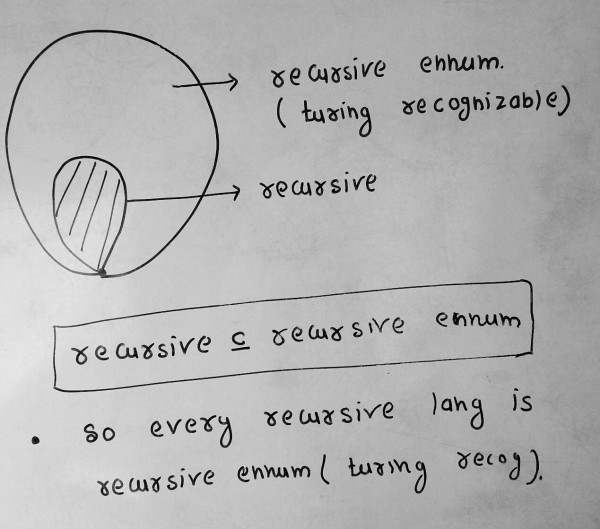 recursive ennum.
(turing recognizable)
recursive
recursive ⊆ recursive ennum
• so every recursive lang is
recursive ennum (turing recog).